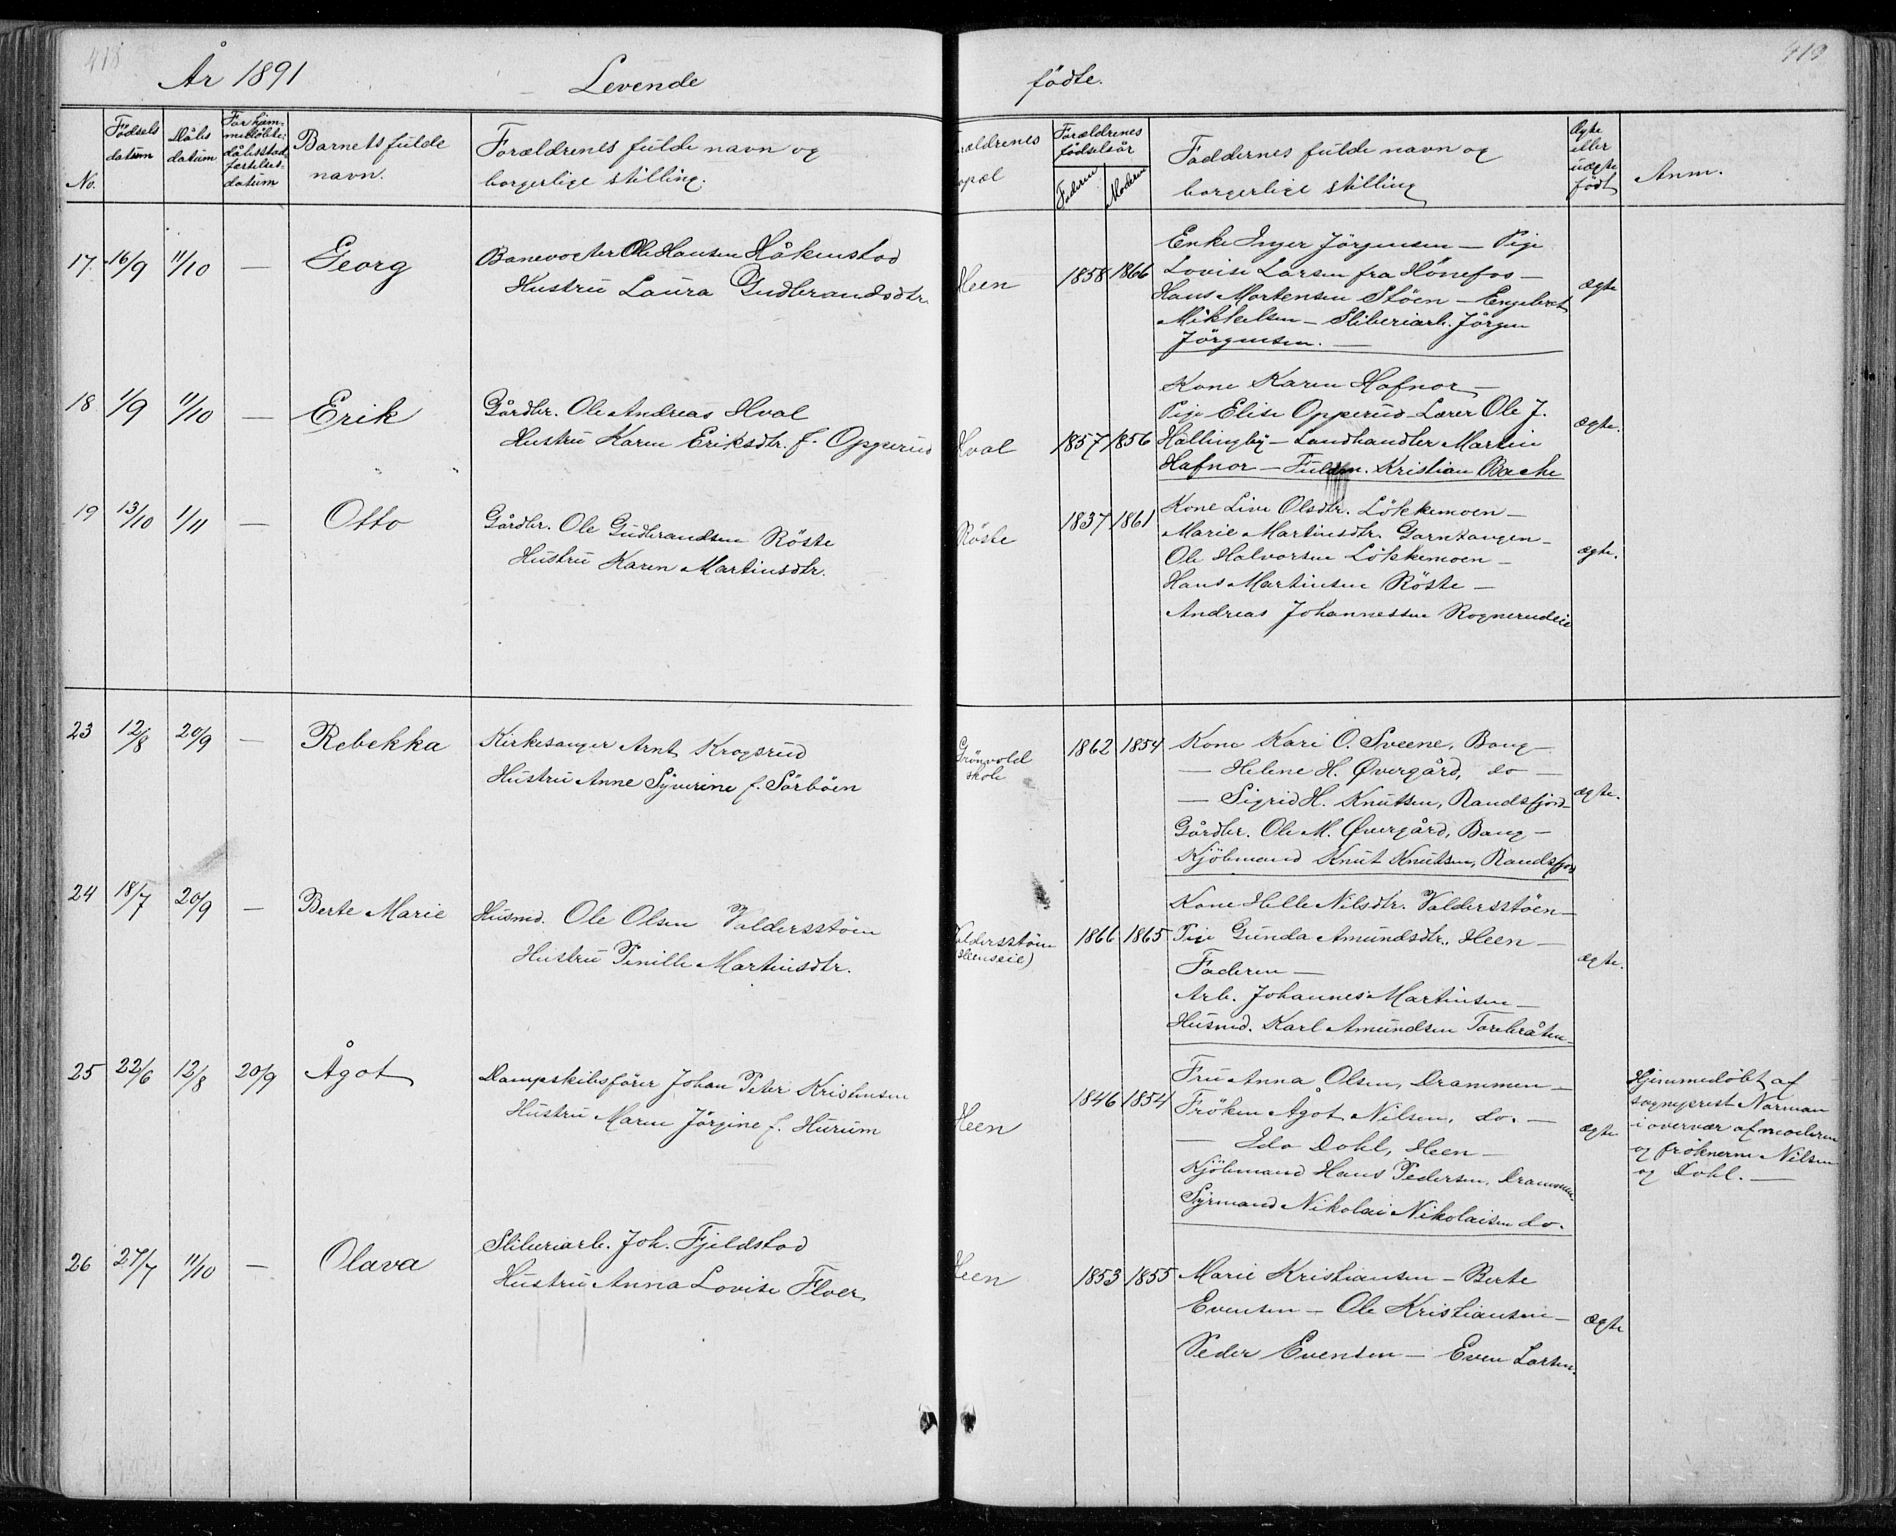 418
År 1891 Levende födte. 419
No. Födsels datum Dåbs datum For hjemmedöbte: dåbsstadfæstelses datum Barnets fulde navn. Forældrenes fulde navn og borgerlige stilling. Forældrenes bopæl Forældrenes födselsår Faderen Moderen Faddernes fulde navn og borgerlige stilling Ægte eller uægte födt Anm.
17 16/9 11/10 — Georg Banevogter Ole Hansen Håkenstad
Hustru Laura Gudbrandsdtr. Heen 1858 1866 ægte
Enke Inger Jörgensen — Pige
Lovise Larsen fra Hönefos —
Hans Mortensen Stöen — Engebret
Mikkelsen — Sliberiarb. Jörgen
Jörgensen. —
18 1/9 11/10 — Erik Gårdbr. Ole Andreas Hval
Hustru Karen Eriksdtr. f. Opperud Hval 1857 1856 ægte.
Kone Karen Hafnor —
Pige Elise Opperud — Lærer Ole J.
Hallingby — Landhandler Martin
Hafnor — Fuldm. Kristian Bache
19 13/10 1/11 — Otto Gårdbr. Ole Gudbrandsen Röste
Hustru Karen Martinsdtr. Röste 1837 1861 ægte.
Kone Live Olsdtr. Lökkemoen —
Marie Martinsdtr. Garntangen —
Ole Halvorsen Lökkemoen —
Hans Martinsen Röste —
Andreas Johannessen Rognerudeie
23 12/8 20/9 — Rebekka Kirkesanger Arnt Krogsrud
Hustru Anne Syverine f. Sörböen Grönvold skole 1862 1854 ægte.
Kone Kari O. Sveene, Bang —
— Helene H. Øvergård, do —
— Sigrid H. Knutsen, Randsfjord
Gårdbr. Ole M. Øvergård, Bang —
Kjöbmand Knut Knutsen, Randsfjord
24 18/7 20/9 — Berte Marie Husmd. Ole Olsen Valdersstöen
Hustru Pernille Martinsdtr. Valdersstöen (Heenseie) 1866 1865 ægte.
Kone Helle Nilsdtr. Valdersstöen —
Pige Gunda Amundsdtr. Heen —
Faderen —
Arb. Johannes Martinsen —
Husmd. Karl Amundsen Torebråten
25 22/6 12/8 20/9 Ågot Dampskibsförer Johan Peter Kristensen
Hustru Maren Jörgine f. Hurum Heen 1846 1854 ægte
Fru Anna Olsen, Drammen —
Fröken Ågot Nilsen, do. —
— Ida Dahl, Heen —
Kjöbmand Hans Pedersen, Drammen
Styrmand Nikolai Nikolaisen do.
Hjemmedöbt af
sogneprest Norman
i overvær af moderen
og fröknerne Nilsen
og Dahl. —
26 27/7 11/10 — Olava Sliberiarb. Joh. Fjeldstad
Hustru Anna Lovise Floer Heen 1853 1855 ægte
Marie Kristiansen — Berte
Evensen — Ole Kristiansen —
Peder Evensen — Even Larsen.